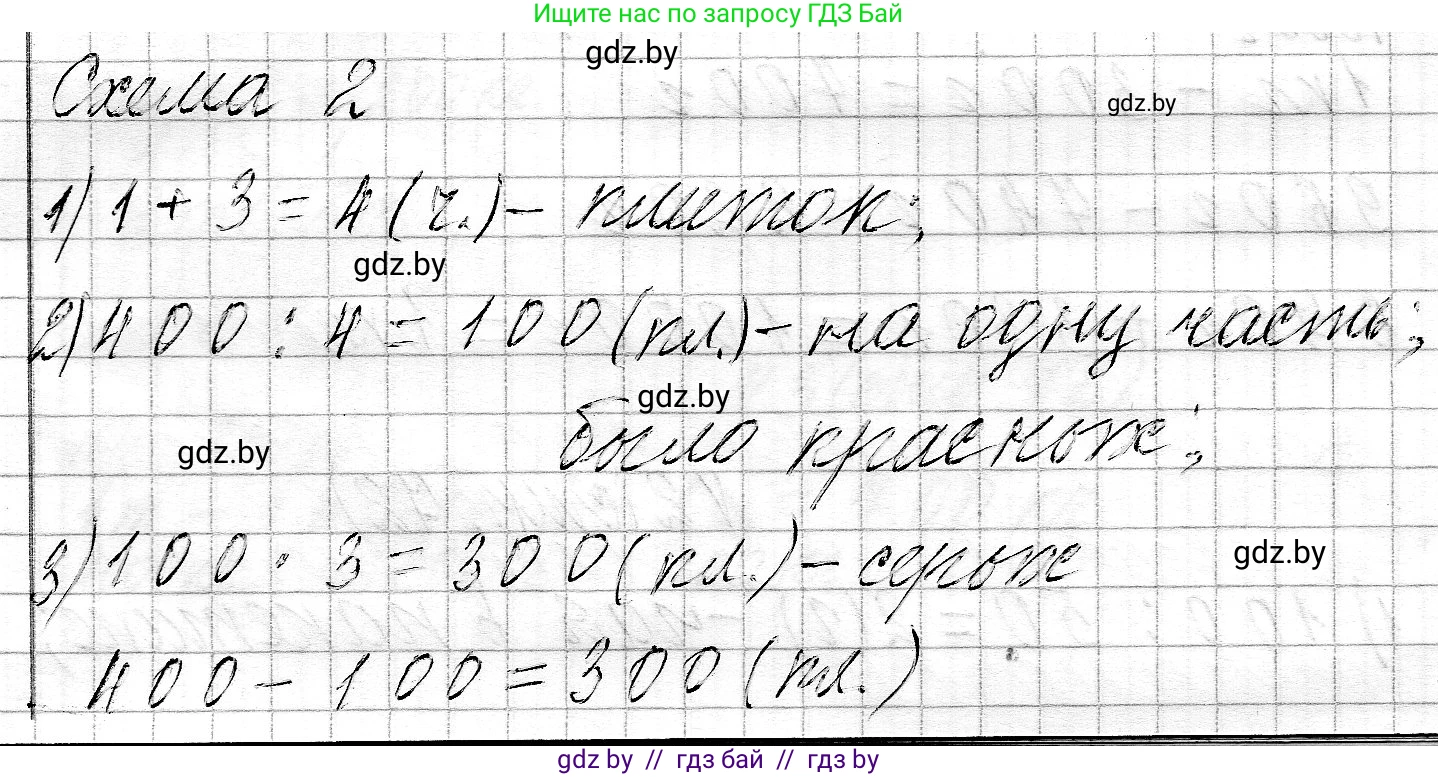 Ищите нас по запросу ГДЗ Бай
gdz.by
Схема 2
gdz.by
1) 1 + 3 = 4 (ч.) – плиток;
gdz.by
2) 400 : 4 = 100 (пл.) – на одну часть;
gdz.by
было красных;
gdz.by
3) 100 · 3 = 300 (пл.) – серых
gdz.by
400 – 100 = 300 (пл.)
gdz.by // гдз бай // гдз by